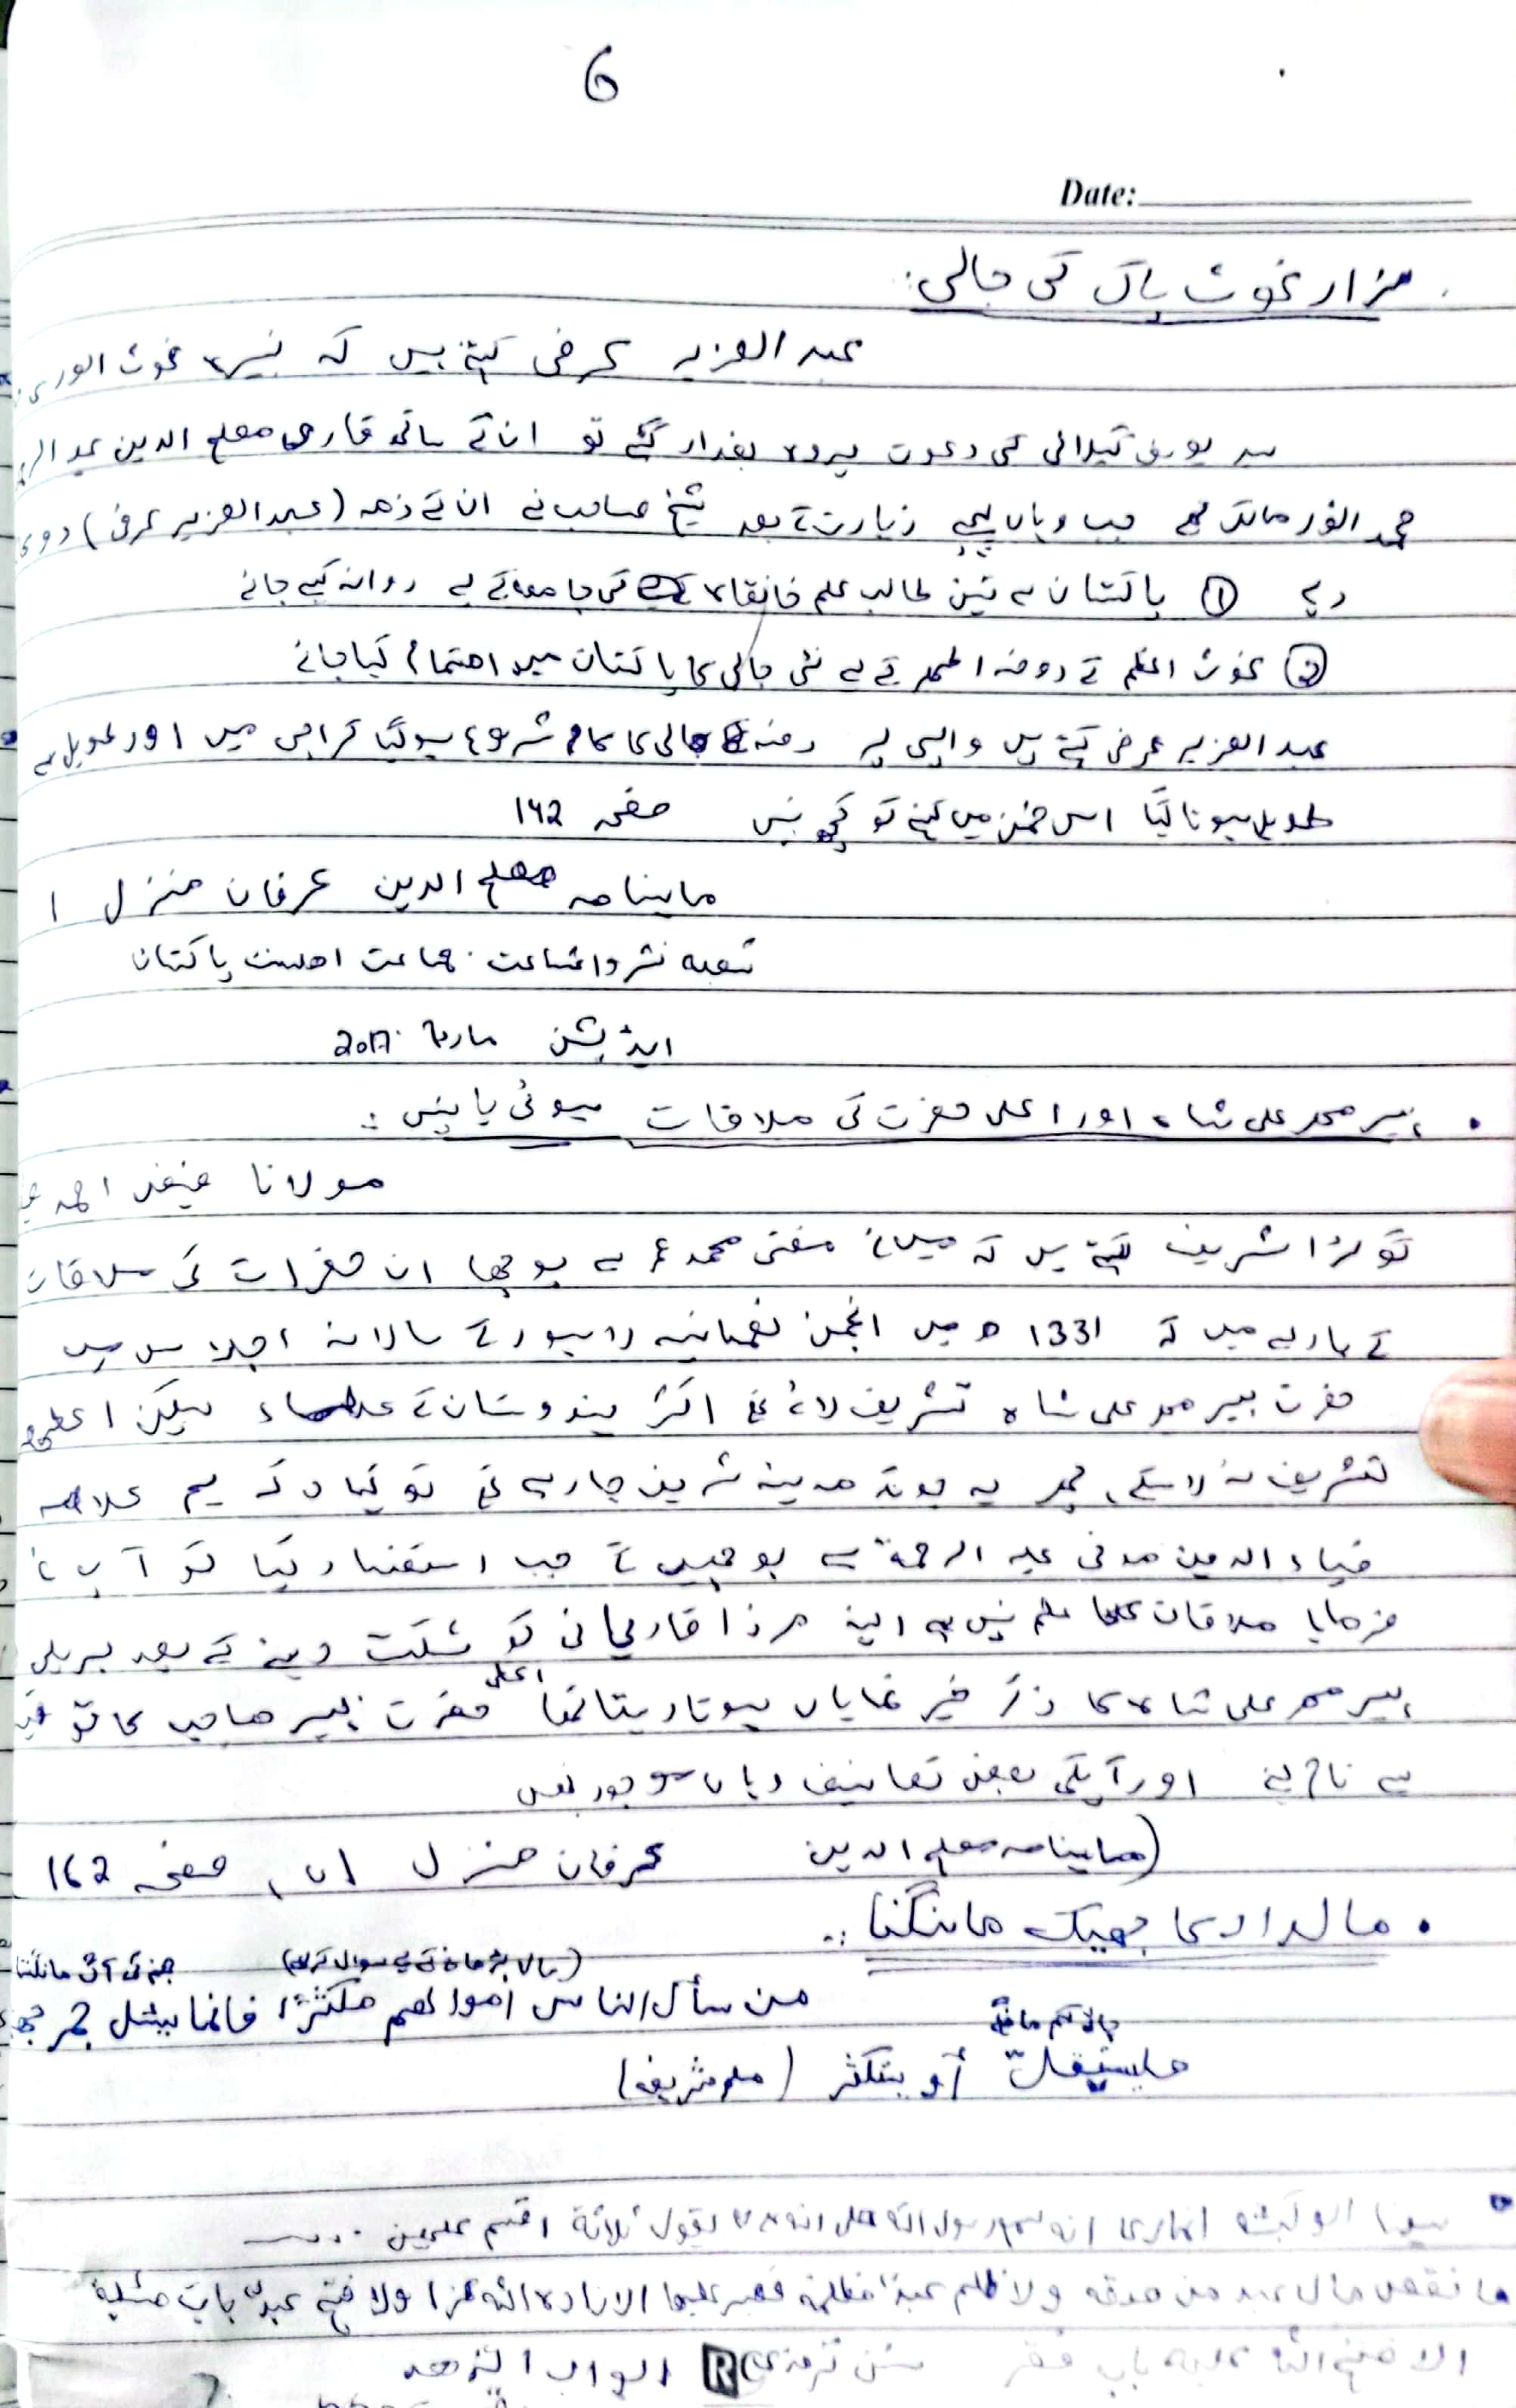 6
Date:
مزار غوث پاک کی جالی:
عبد العزیز عرفی کہتے ہیں کہ نبیرہ غوث الوری
سید یوسف گیلانی کی دعوت پر وہ بغداد گئے تو ان کے ساتھ قاری مصلح الدین
محمد الفور مالک تھے جب وہاں پہنچے زیارت کے بعد شیخ صاحب نے ان کے ذمہ (عبد العزیز عرفی) دو
دیے ① پاکستان سے تین طالب علم خانقاہ کی جامعہ کے لیے روانہ کیے جائے
② غوث اعظم کے روضہ اطہر کے لیے نئی جالی کا پاکستان میں اہتمام کیا جائے
عبد العزیز عرفی کہتے ہیں واپسی پر جالی کا کام شروع ہو گیا کراچی میں اور طویل سے
طویل ہوتا گیا اس ضمن میں کہنے کو کچھ نہیں صفحہ 162
ماہنامہ مصلح الدین عرفان منزل ا
شعبہ نشر و اشاعت جماعت اہلسنت پاکستان
ایڈیشن مارچ
پیر مہر علی شاہ اور اعلی حضرت کی ملاقات ہوئی یا نہیں:
مولانا فیض احمد
گولڑا شریف کہتے ہیں کہ میں نے مفتی محمد عمر سے پوچھا ان حضرات کی ملاقات
کے بارے میں کہ 1331ھ میں انجمن نعمانیہ کے سالانہ اجلاس میں
حضرت پیر مہر علی شاہ تشریف لائے تھے اکثر ہندوستان کے علماء لیکن
تشریف نہ لا سکے، پھر یہ مدینہ شریف جا رہے تھے تو کہا کہ ہم علامہ
ضیاء الدین مدنی علیہ الرحمۃ سے پوچھیں گے جب استفسار کیا تو آپ نے
فرمایا ملاقات کا علم نہیں ہے البتہ مرزا قادیانی کو شکست دینے کے بعد بریلی
پیر مہر علی شاہ کا ذکر خیر نمایاں ہوتا رہتا تھا اعلی حضرت پیر صاحب کا
سے نام لیتے اور آپکی بعض تصانیف وہاں موجود تھیں
(ماہنامہ مصلح الدین عرفان منزل ا، صفحہ 162
مالدار کا بھیک مانگنا:
(مال بڑھانے کے لیے سوال کرے) جہنم کی آگ مانگتا
من سأل الناس أموالهم مکثرًا فانما یسئل جمر
فلیستقل أو یستکثر (مسلم شریف)
سیدنا ابو کبشہ انماری انه سمع رسول اللہ صلی اللہ یقول ثلاثة اقسم علیهن
ما نقص مال عبد من صدقه ولا ظلم عبدٌ مظلمة فصبر علیها الا زادہ اللہ عزا ولا فتح عبدٌ باب مسئلة
الا فتح اللہ علیه باب فقر سنن ترمذی ابواب الزهد